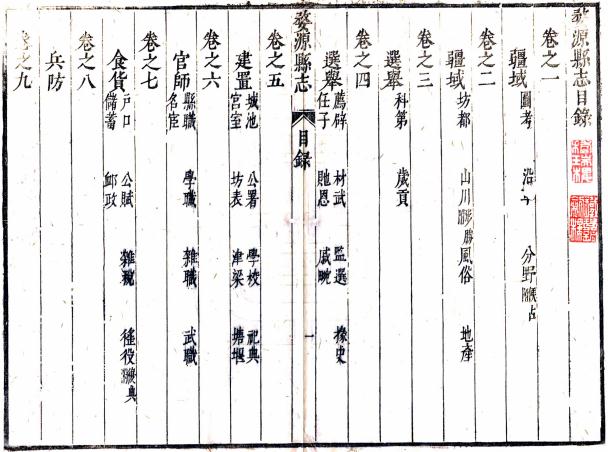 婺源縣志目錄
卷之一
疆域 圖考 沿 分野 附機占
卷之二
疆域 坊都 山川 附形勝 風俗 地產
卷之三
選舉 科第 歲貢
卷之四
選舉 薦辟 材武 監選 掾史
任子 貤恩 戚畹
婺源縣志 目錄 一
卷之五
建置 城池 公署 學校 祀典
宮室 坊表 津梁 塘堰
卷之六
官師 縣職 學職 雜職 武職
名宦
卷之七
食貨 戶口 公賦 雜稅 徭役
儲蓄 邮政
卷之八
兵防
卷之九